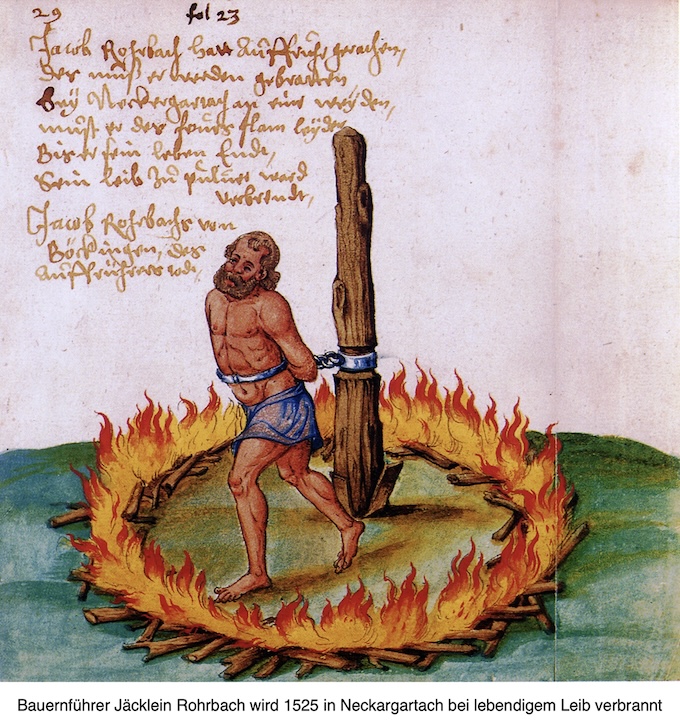 29 fol 23
Jacob Rohrbach hatt Auffruhr gerachen,
des muß er werden gebratten
Bey Neckergartach an eine weyden,
mußt er des feurs flam leyden
Bis er sein leben Endt,
Sein leib zu puluer ward
verbrendt,
Jacob Rohrbachs von
Böckingen, des
Auffrührers todt,
Bauernführer Jäcklein Rohrbach wird 1525 in Neckargartach bei lebendigem Leib verbrannt